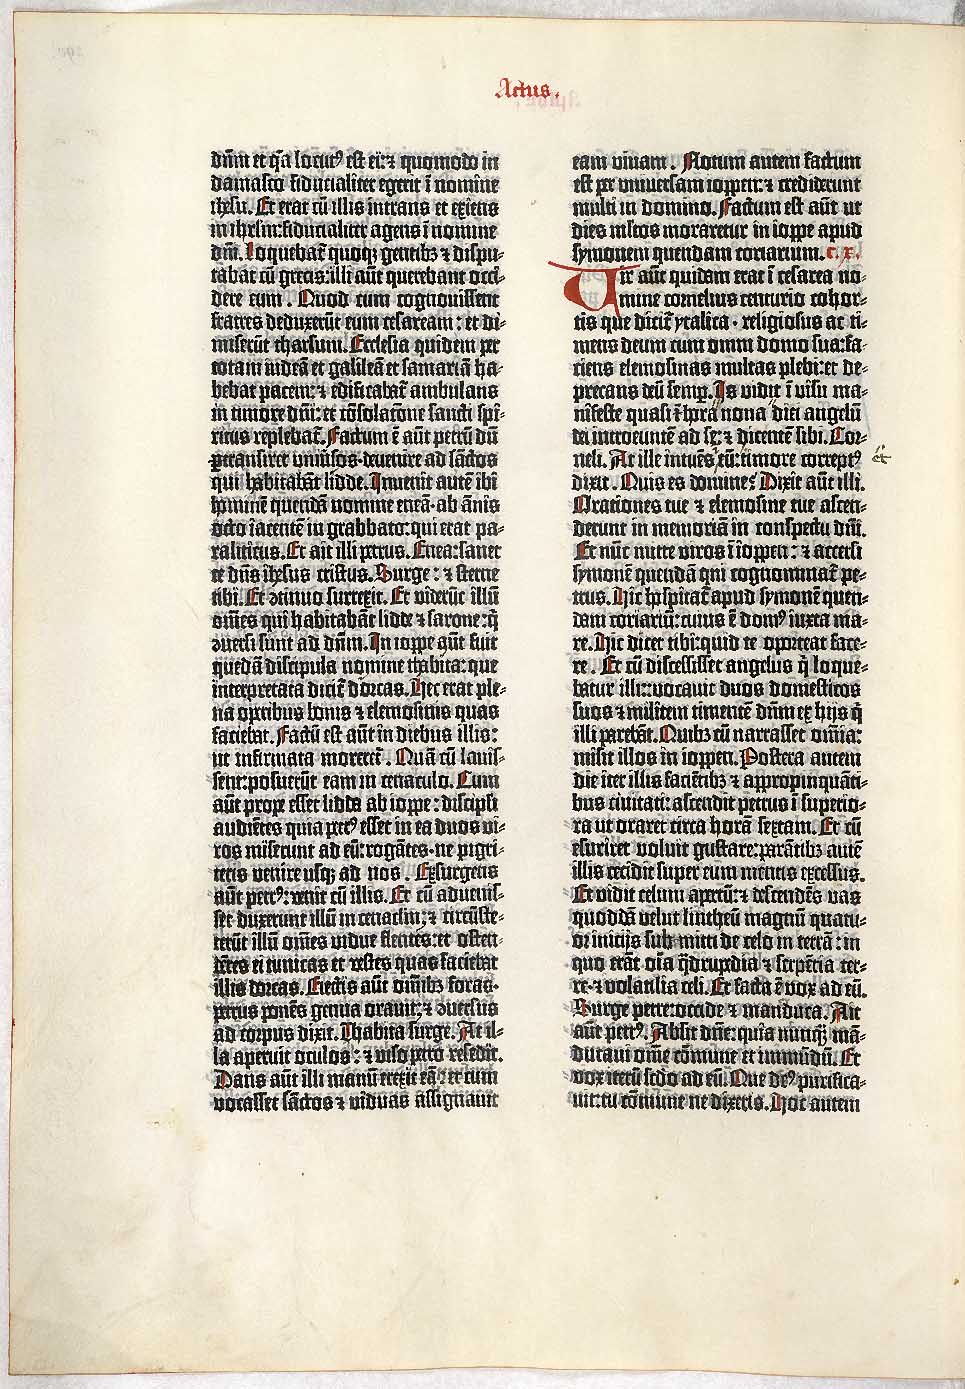 Actus.
dñm et q̃a locut9 est ei: ⁊ quomodo in
damasco fiducialiter egerit ĩ nomine
ihesu. Et erat cũ illis intrans et exiens
in ihrl'm: fiducialiter agens ĩ nomine
dñi. Loquebat᷑ quoqꝫ gentibꝫ ⁊ dispu-
tabat cũ grecis: illi aũt querebant occi-
dere eum. Quod cum cognouissent
fratres deduxerũt eum cesaream: et di-
miserũt tharsum. Ecclesia quidem per
totam iudeã et galileã et samariã ha-
bebat pacem: ⁊ edificabat᷑ ambulans
in timore dñi: et cõsolacõne sancti spi-
ritus replebat᷑. Factum ẽ aũt petrũ dũ
ꝑtransiret vniu'sos deuenire ad sãctos
qui habitabãt lidde. Inuenit autẽ ibi
hominẽ quendã nomine eneã ab ãnis
octo iacentẽ in grabbato: qui erat pa-
raliticus. Et ait illi petrus. Enea: sanet
te dñs ihesus cristus. Surge: ⁊ sterne
tibi. Et ↄtinuo surrexit. Et viderũt illũ
om̃es qui habitabãt lidde ⁊ sarone: q̃
ↄuersi sunt ad dñm. In ioppe aũt fuit
quedã discipula nomine thabita: que
interpretata dicit᷑ dorcas. Hec erat ple-
na operibus bonis ⁊ elemosinis quas
faciebat. Factũ est aũt in diebus illis:
ut infirmata moreret᷑. Quã cũ lauis-
sent: posuerũt eam in cenaculo. Cum
aũt prope esset lidda ab ioppe: discipli
audiẽtes quia petr9 esset in ea duos vi-
ros miserunt ad eũ: rogãtes ne pigri-
teris venire usqꝫ ad nos. Exsurgens
aũt petr9: venit cũ illis. Et cũ aduenis-
set duxerunt illũ in cenaclm: ⁊ circũste-
terũt illũ om̃es vidue flentes: et osten-
dẽtes ei tunicas et vestes quas faciebat
illis dorcas. Eiectis aũt om̃ibꝫ foras
petrus ponẽs genua orauit: ⁊ ↄuersus
ad corpus dixit. Thabita surge. At il-
la aperuit oculos: ⁊ viso petro resedit.
Dans aũt illi manũ erexit eã: et cum
vocasset sãctos ⁊ viduas assignauit
eam viuam. Notum autem factum
est per vniuersam ioppen: ⁊ crediderunt
multi in domino. Factum est aũt ut
dies multos moraretur in ioppe apud
symonem quendam coriarium. c. x.
Vir aũt quidam erat ĩ cesarea no-
mine cornelius centurio cohor-
tis que dicit᷑ ytalica religiosus ac ti-
mens deum cum omni domo sua: fa-
ciens elemosinas multas plebi: et de-
precans deũ semp. Is vidit ĩ visu ma-
nifeste quasi ĩ hora nona diei angelũ
dei introeuntẽ ad se: ⁊ dicentẽ sibi. Cor-
neli. At ille intuẽs eũ: timore corrept9
et
dixit. Quis es domine? Dixit aũt illi.
Orationes tue ⁊ elemosine tue ascen-
derunt in memoriã in conspectu dñi.
Et nũc mitte viros ĩ ioppen: ⁊ accersi
symonẽ quendã qui cognominat᷑ pe-
trus. Hic hospitat᷑ apud symonẽ quen-
dam coriariũ: cuius ẽ dom9 iuxta ma-
re. Hic dicet tibi: quid te oporteat face-
re. Et cũ discessisset angelus q̃ loque-
batur illi: vocauit duos domesticos
suos ⁊ militem timentẽ dñm ex hijs q̃
illi parebãt. Quibꝫ cũ narrasset om̃ia:
misit illos in ioppen. Postera autem
die iter illis faciẽtibꝫ ⁊ appropinquãti-
bus ciuitati: ascendit petrus ĩ superio-
ra ut oraret circa horã sextam. Et cũ
esuriret voluit gustare: parãtibꝫ autẽ
illis cecidit super eum mentis excessus.
Et vidit celum apertũ: ⁊ descendẽs vas
quoddã velut lintheũ magnũ quatu-
or inicijs submitti de celo in terrã: in
quo erãt oĩa q̃drupedia ⁊ serpẽtia ter-
re ⁊ volatilia celi. Et facta ẽ vox ad eũ.
Surge petre: occide ⁊ manduca. Ait
aũt petr9. Absit dñe: quia nũqꝫ mã-
ducaui om̃e cõmune et immũdũ. Et
vox iterũ scdo ad eũ. Que de9 purifica-
uit: tu cõmune ne dixeris. Hoc autem